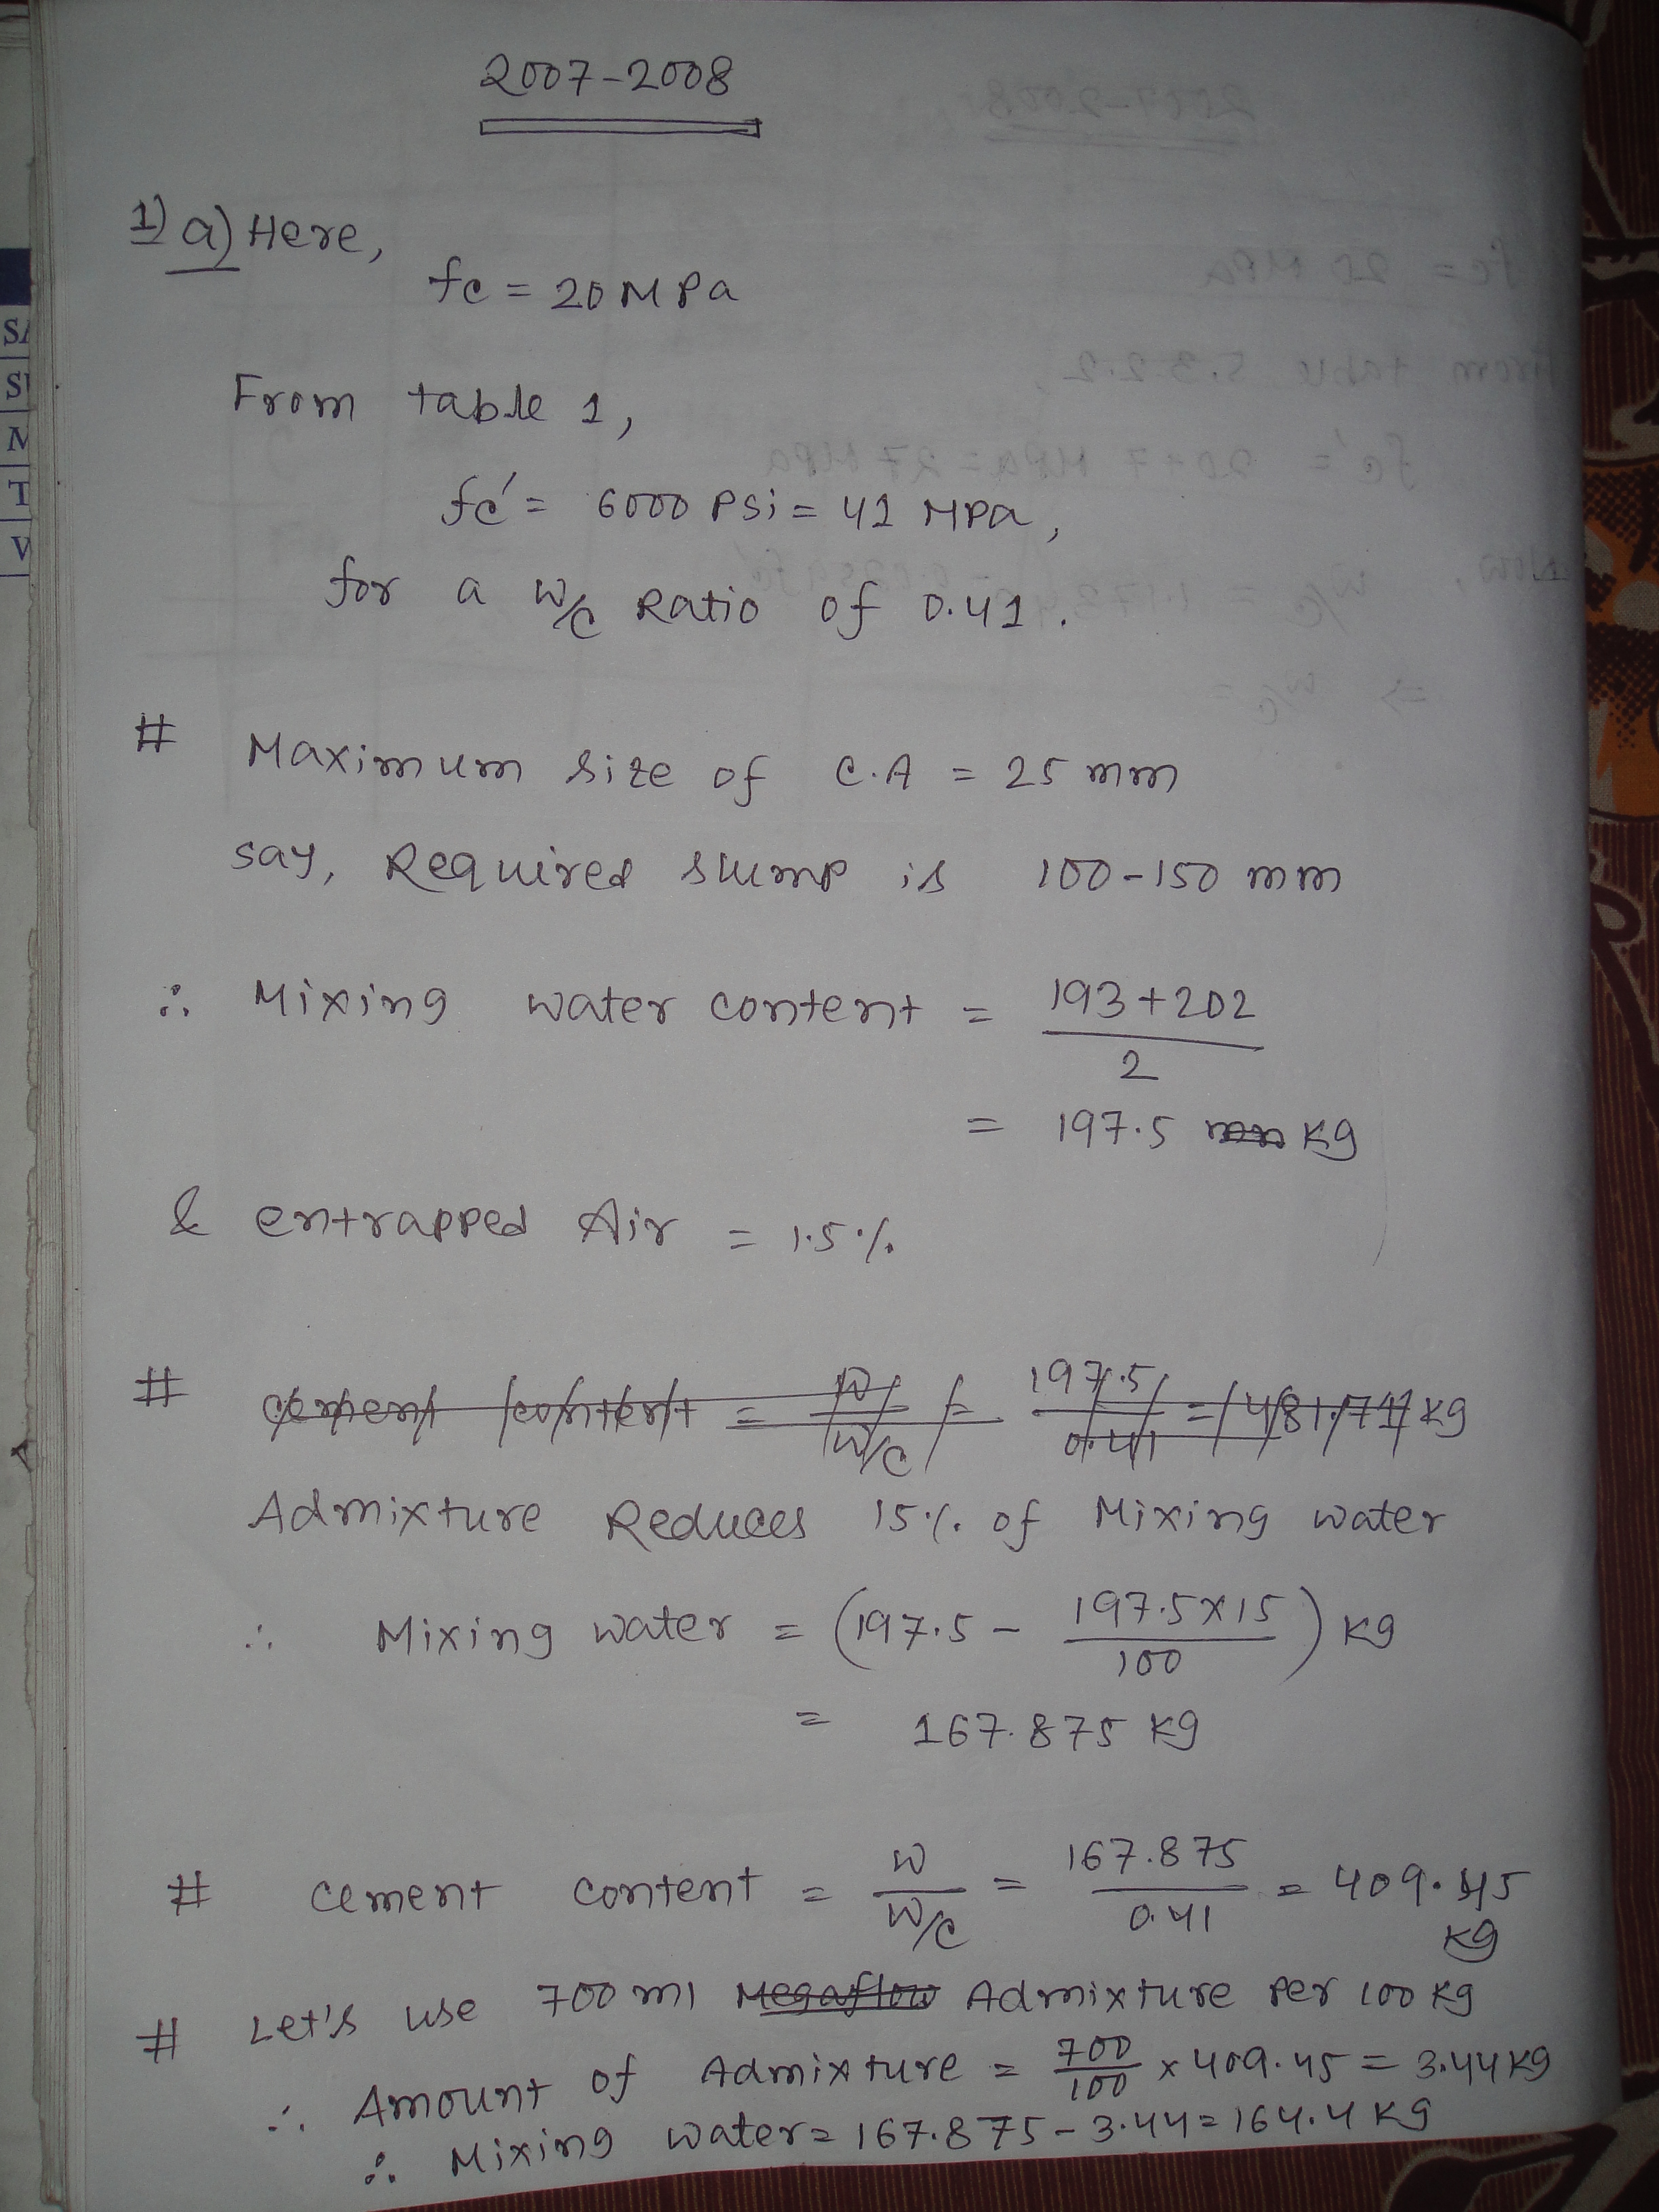 2007-2008
1) a) Here,
fc = 20 MPa
From table 1,
fc' = 6000 Psi = 41 MPa,
for a W/C Ratio of 0.41.
# Maximum size of C.A = 25 mm
say, Required slump is 100-150 mm
∴ Mixing water content = (193+202)/2
= 197.5 mm Kg
& entrapped Air = 1.5%
# cement content = W/(W/C) = 197.5/0.41 = 481.71 Kg
Admixture Reduces 15% of Mixing water
∴ Mixing water = (197.5 - (197.5×15)/100) Kg
= 167.875 Kg
# cement content = W/(W/C) = 167.875/0.41 = 409.45
Kg
# Let's use 700 ml Megaflow Admixture per 100 Kg
∴ Amount of Admixture = 700/100 × 409.45 = 3.44 Kg
∴ Mixing water = 167.875 - 3.44 = 164.4 Kg
SA
S
M
T
V
2007-2008
fc = 20 MPa
From table 5.3.2.2,
fc' = 20+7 MPa = 27 MPa
Now, W/C =
⇒ W/C =